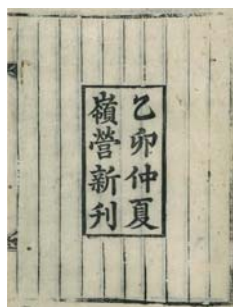 乙卯仲夏
嶺營新刊